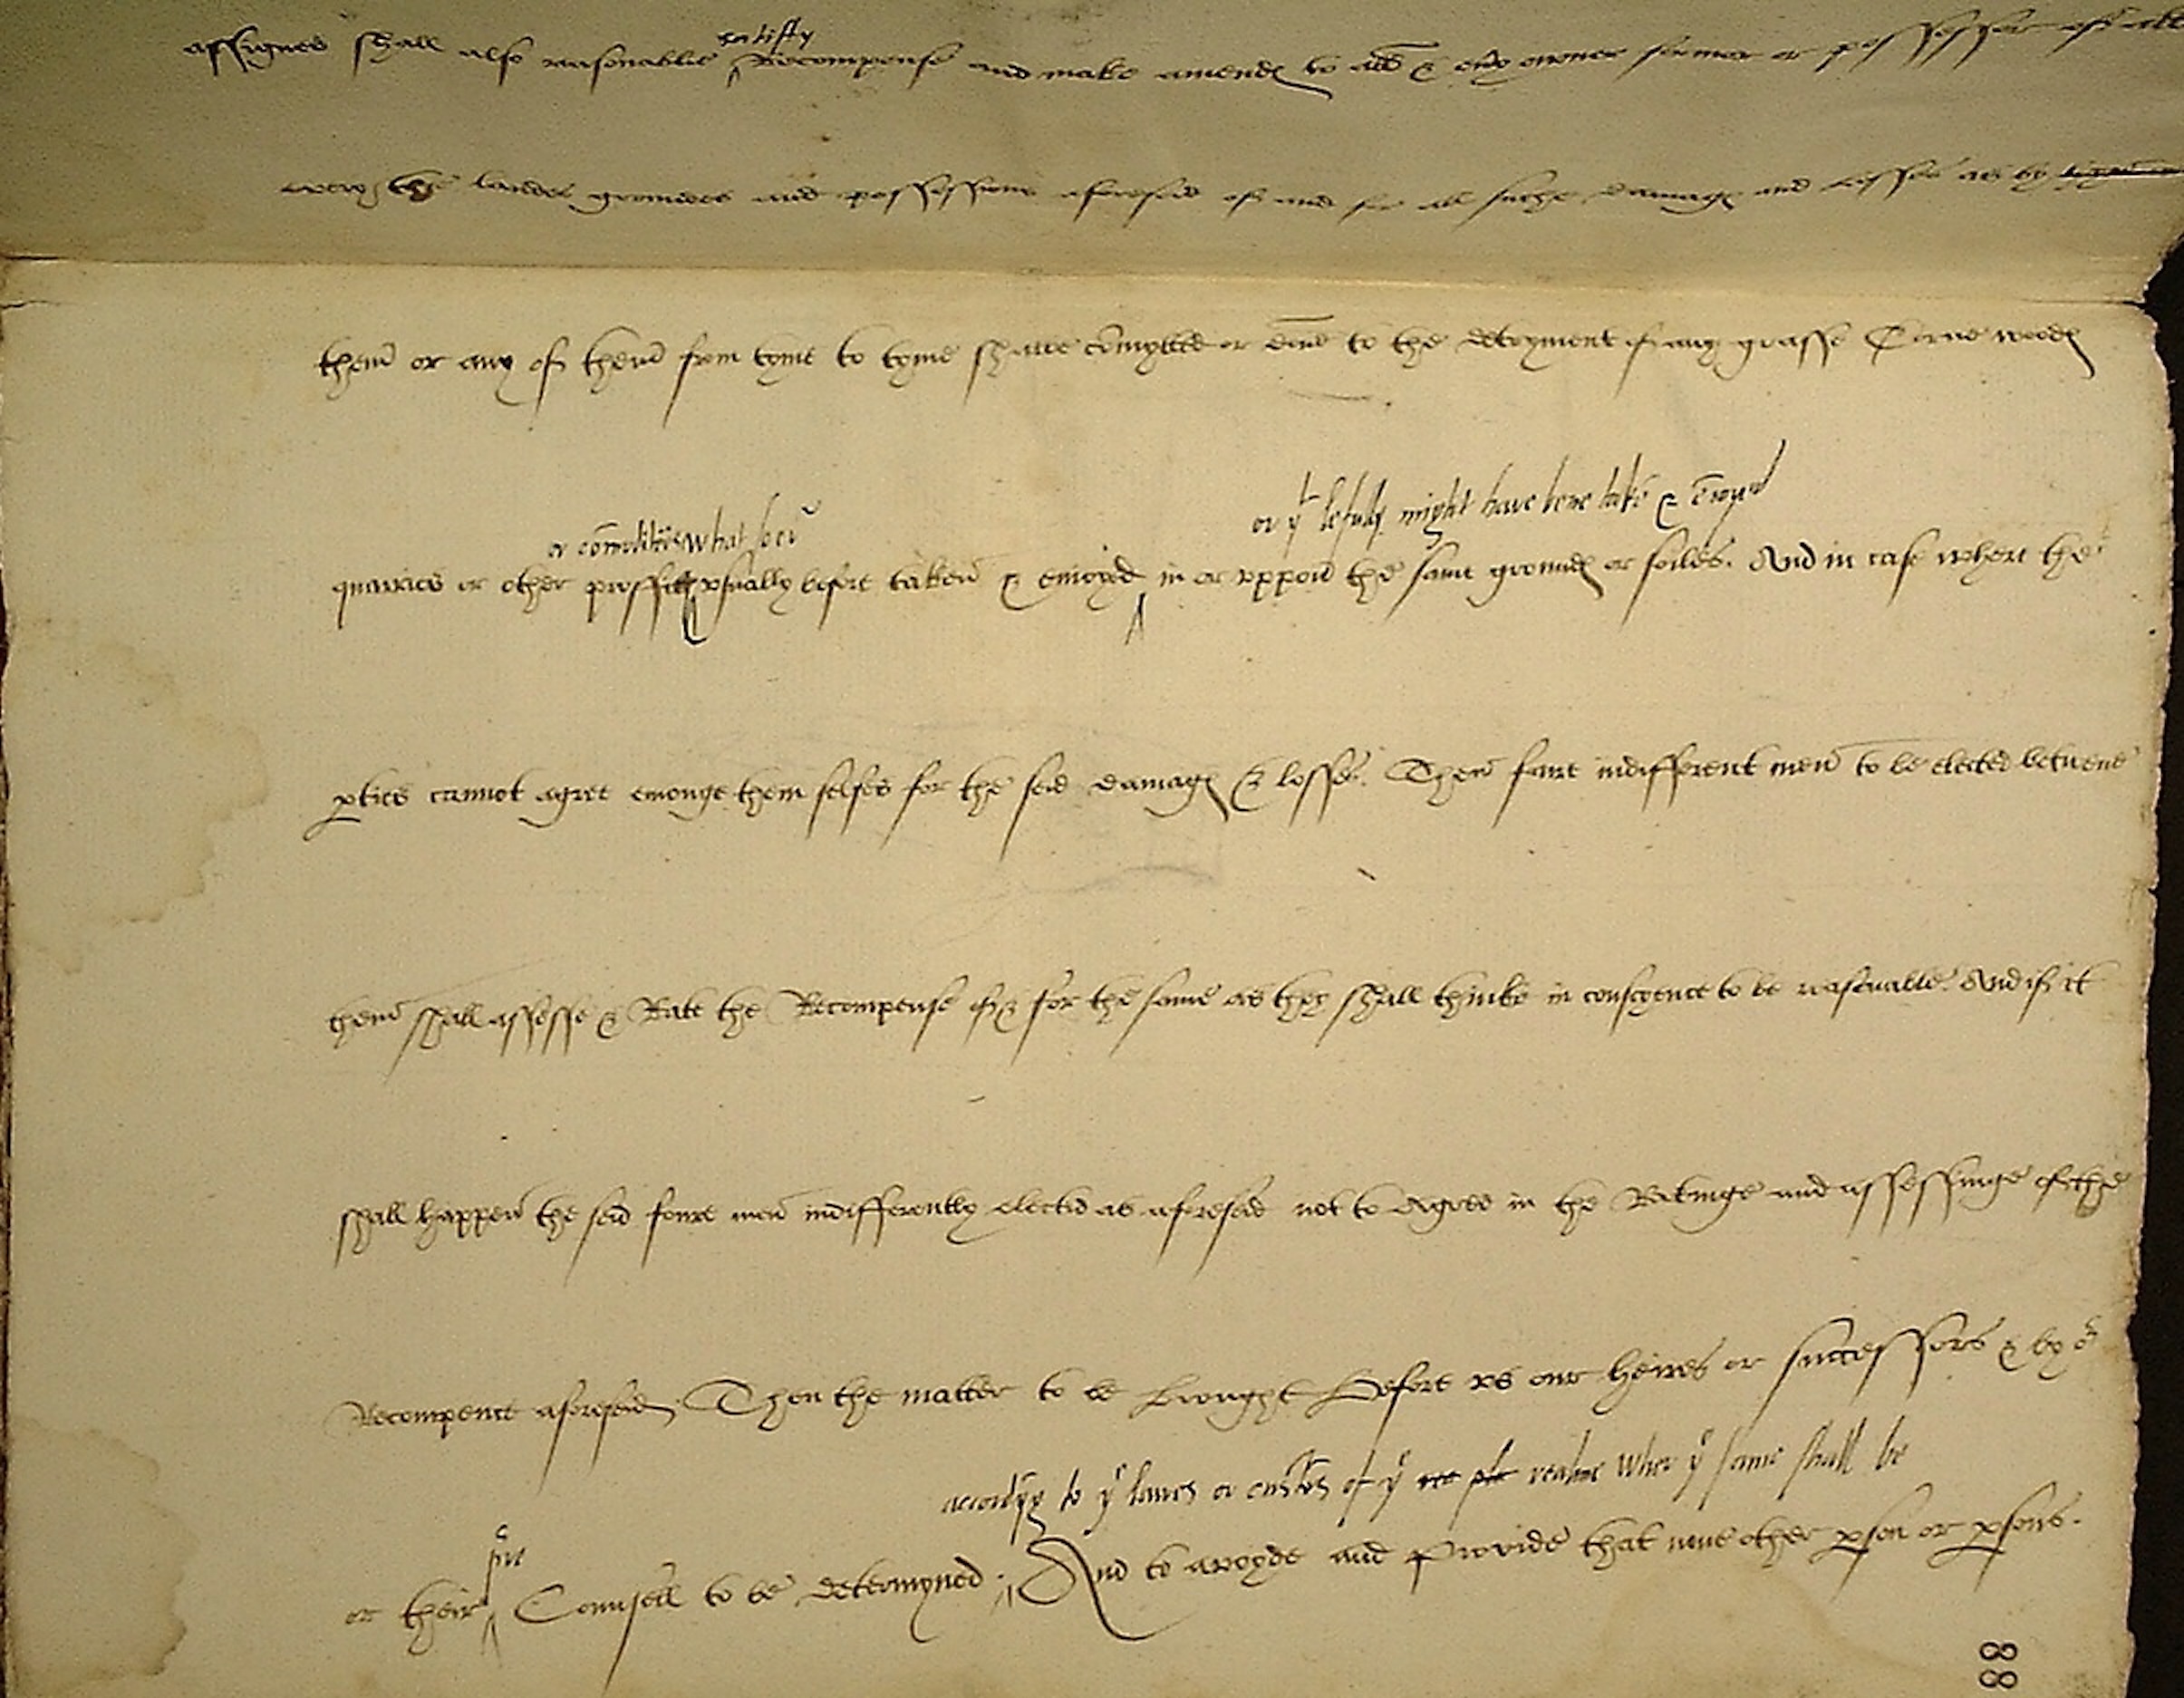 assignes shall also reasonablie
satisfy
Recompense and make amend to all & eny owner fermor or possessor of
the landes groundes and possessions aforesaid of and for all suche damag and losses as by
them or any of them from tyme to tyme shalbe comytted or done to the detryment of any grasse Corne wood
or comodities what soeu
or yt lefully might have bene take & enioyed
quarries or other proffitt vsually before taken & enioyed in or vppon the same ground or soiles. And in case where the
pties cannot agree emonge them selfes for the seid damag & losses. Then foure indifferent men to be elected betwene
them shall assesse & Rate the Recompense of & for the same as they shall thinke in conscyence to be reasonable. And if it
shall happen the seid foure men indifferently elected as aforeseid not to Agree in the Ratinge and assessinge of the
Recompence aforeseid. Then the matter to be brought Before vs our heires or successors & by or
accordyng to ye lawes or custos of ye realme wher ye same shall be
pre
or their Counsell to be determyned. And to avoyde and Provide that none other pson or psons.
88